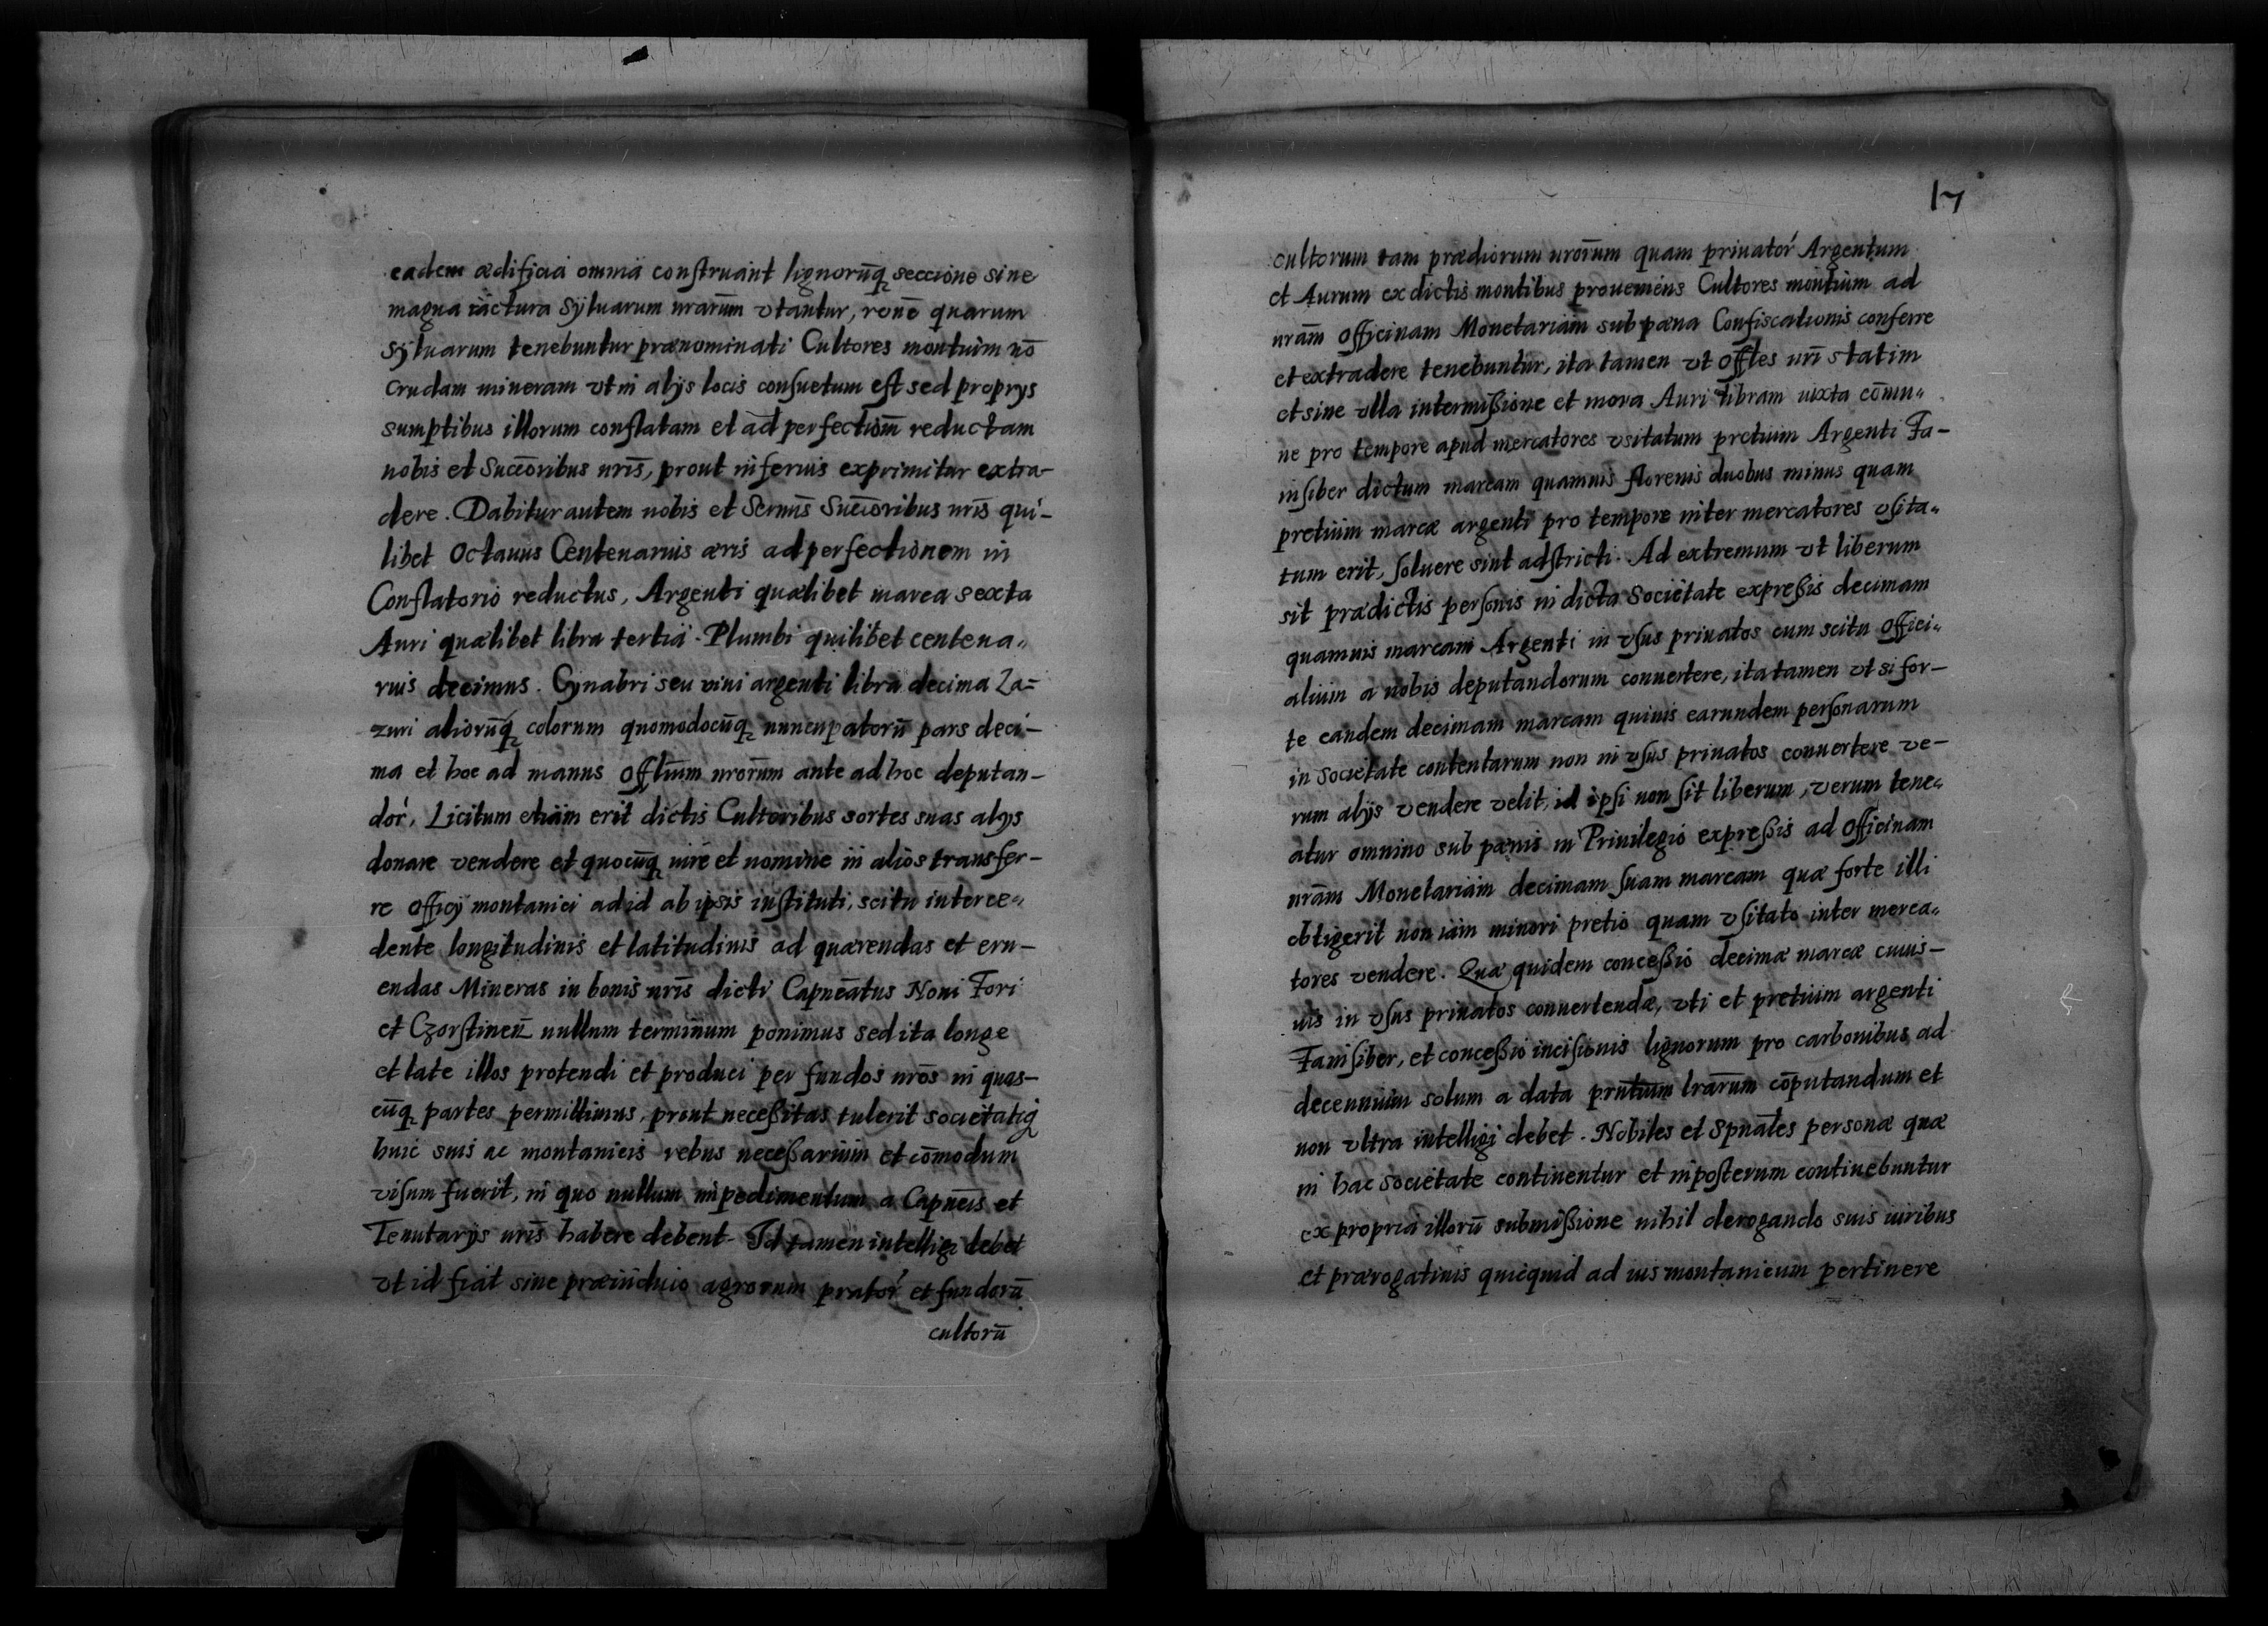 eadem ædificia omnia construant lignorūq seccione sine
magna iactura Syluarum nrarūm vtantur, rone quarum
Syluarum tenebuntur prænominati Cultores montium nō
crudam mineram vt in alijs locis consuetum est sed proprijs
sumptibus illorum conflatam et ad perfectiōm reductam
nobis et Succōribus nrīs, prout inferius exprimitur extra-
dere. Dabitur autem nobis et Sermīs Succōribus nrīs qui-
libet Octauus Centenarius æris ad perfectionem in
Conflatorio reductus, Argenti quælibet marca sexta
Auri quælibet libra tertia. Plumbi quilibet centena„
rius decimus. Cynabri seu viui argenti libra decima La=
zuri aliorūq colorum quomodocūq nuncupatorū pars deci-
ma et hoc ad manus Offlium nrorūm ante ad hoc deputan-
dor. Licitum etiam erit dictis Cultoribus sortes suas alijs
donare vendere et quocūq iure et nomine in alios transfer-
re officij montanici ad id ab ipsis instituti, scitu interce„
dente longitudinis et latitudinis ad quærendas et eru-
endas Mineras in bonis nrīs dicti Capneātus Noui Fori
et Czorstinen̄ nullum terminum ponimus sed ita longe
et late illos protendi et produci per fundos nrōs in quas-
cūq partes permittimus, prout necessitas tulerit societatiq
huic suis ac montanicis rebus necessarium et cōmodum
visum fuerit, in quo nullum impedimentum a Capneīs et
Tenutarijs nrīs habere debent. Id tamen intelligi debet
vt id fiat sine præiudicio agrorum prator et fundorū
cultorū
17
cultorum tam prædiorum nrorūm quam priuator Argentum
et Aurum ex dictis montibus proueniens Cultores montium ad
nrām Officinam Monetariam sub pæna Confiscationis conferre
et extradere tenebuntur, ita tamen vt Offles nrī statim
et sine vlla intermissione et mora Auri libram iuxta cōmu„
ne pro tempore apud mercatores vsitatum pretium Argenti Fa-
insiber dictum marcam quamuis florenis duobus minus quam
pretium marcæ argenti pro tempore inter mercatores vsita„
tum erit, soluere sint adstricti. Ad extremum vt liberum
sit prædictis personis in dicta Societate expressis decimam
quamuis marcam Argenti in vsus priuatos cum scitu offici„
alium a nobis deputandorum conuertere, ita tamen vt si for-
te eandem decimam marcam quiuis earundem personarum
in Societate contentarum non in vsus priuatos conuertere ve-
rum alijs vendere velit, id ipsi non sit liberum, verum tene„
atur omnino sub pænis in Priuilegio expressis ad Officinam
nrām Monetariam decimam suam marcam quæ forte illi
obtigerit non iam minori pretio quam vsitato inter merca„
tores vendere. Quæ quidem concessio decimæ marcæ cuius-
uis in vsus priuatos conuertendæ, vti et pretium argenti
Fanisiber, et concessio incisionis lignorum pro carbonibus, ad
decennium solum a data prntium lrarūm cōputandum et
non vltra intelligi debet. Nobiles et Spnāles personæ quæ
in hac Societate continentur et inposterum continebuntur
ex propria illorū submissione nihil derogando suis iuribus
et prærogatiuis quicquid ad ius montanicum pertinere